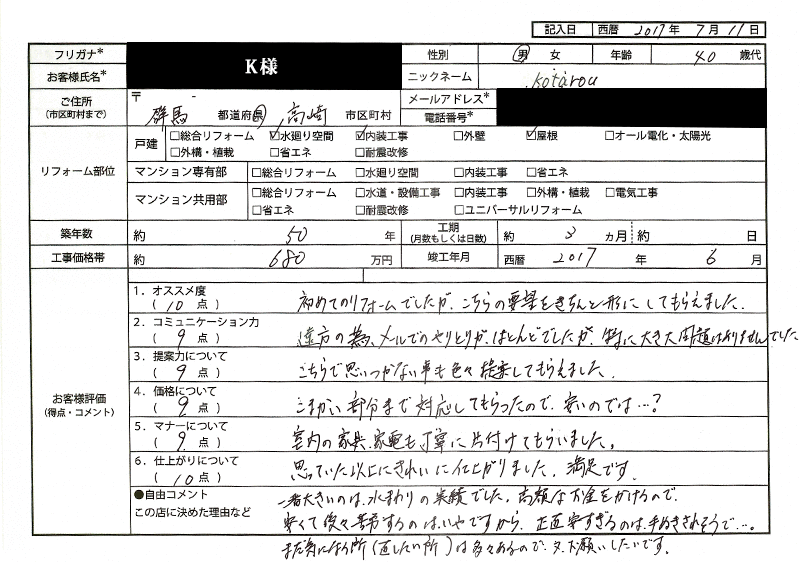 記入日 西暦 2017年 7月 11日
フリガナ* K様 性別 男 女 年齢 40 歳代
お客様氏名* ニックネーム kotarou
ご住所 (市区町村まで) 〒 - 群馬 都道府県 高崎 市区町村 メールアドレス*
電話番号*
リフォーム部位 戸建 □総合リフォーム ☑水廻り空間 ☑内装工事 □外壁 ☑屋根 □オール電化・太陽光
□外構・植栽 □省エネ □耐震改修
マンション専有部 □総合リフォーム □水廻り空間 □内装工事 □省エネ
マンション共用部 □総合リフォーム □水道・設備工事 □内装工事 □外構・植栽 □電気工事
□省エネ □耐震改修 □ユニバーサルリフォーム
築年数 約 50 年 工期 (月数もしくは日数) 約 3 ヵ月 約 日
工事価格帯 約 680 万円 竣工年月 西暦 2017 年 6 月
お客様評価 (得点・コメント)
1．オススメ度
( 10 点 ) 初めてのリフォームでしたが、こちらの要望をきちんと形にしてもらえました.
2．コミュニケーション力
( 9 点 ) 遠方の為、メールでのやりとりが、ほとんどでしたが、特に大きな問題はありませんでした
3．提案力について
( 9 点 ) こちらで思いつかない事も色々提案してもらえました.
4．価格について
( 9 点 ) こまかい部分まで対応してもらったので、安いのでは…?
5．マナーについて
( 9 点 ) 室内の家具、家電も丁寧に片付けてもらいました。
6．仕上がりについて
( 10 点 ) 思っていた以上にきれいに仕上がりました、満足です.
●自由コメント
この店に決めた理由など
一番大きいのは、水まわりの実績でした。高額なお金をかけるので、
安くて後々苦労するのはいやですから、正直安すぎるのは手ぬきされそうで…。
まだ気になる所(直したい所)は多々あるので、又、お願いしたいです。